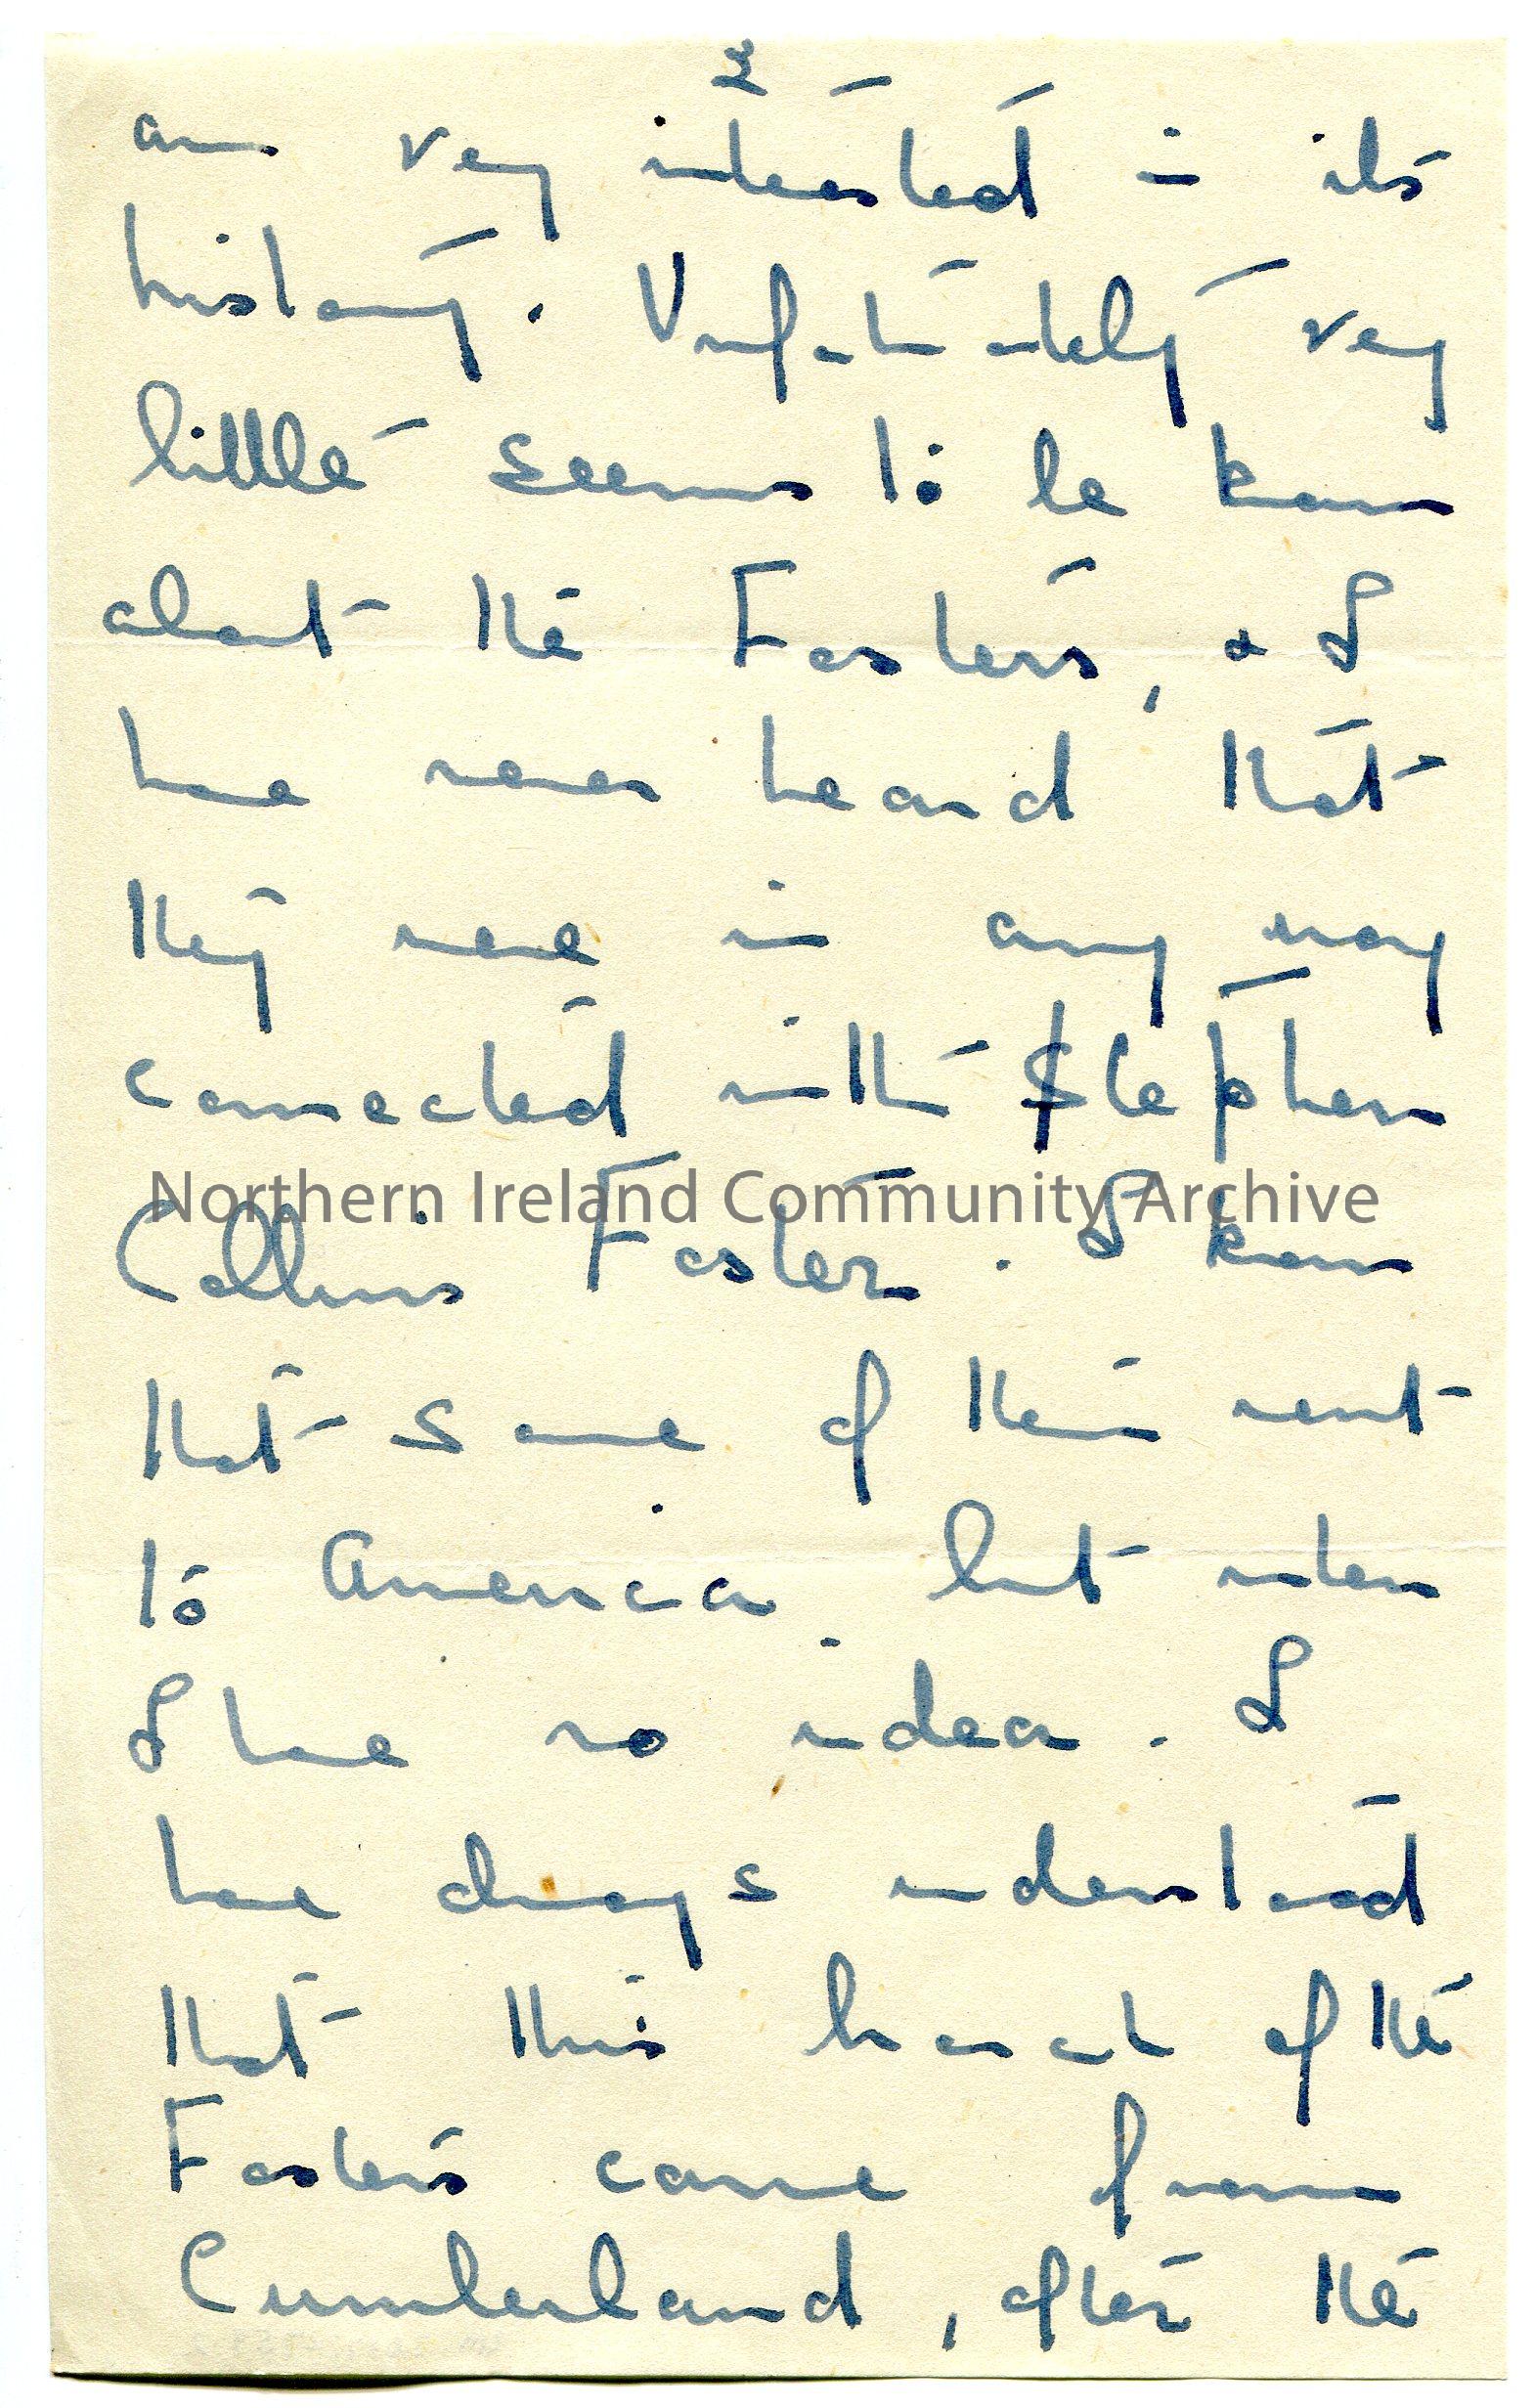 2
am very interested in its
history. Unfortunately very
little seems to be known
about the Fosters, & I
have never heard that
they were in any way
connected with Stephen
Northern Ireland Community Archive
Collins Foster. I know
that some of them went
to America, but when
I have no idea. I
have always understood
that this branch of the
Fosters came from
Cumberland, after the